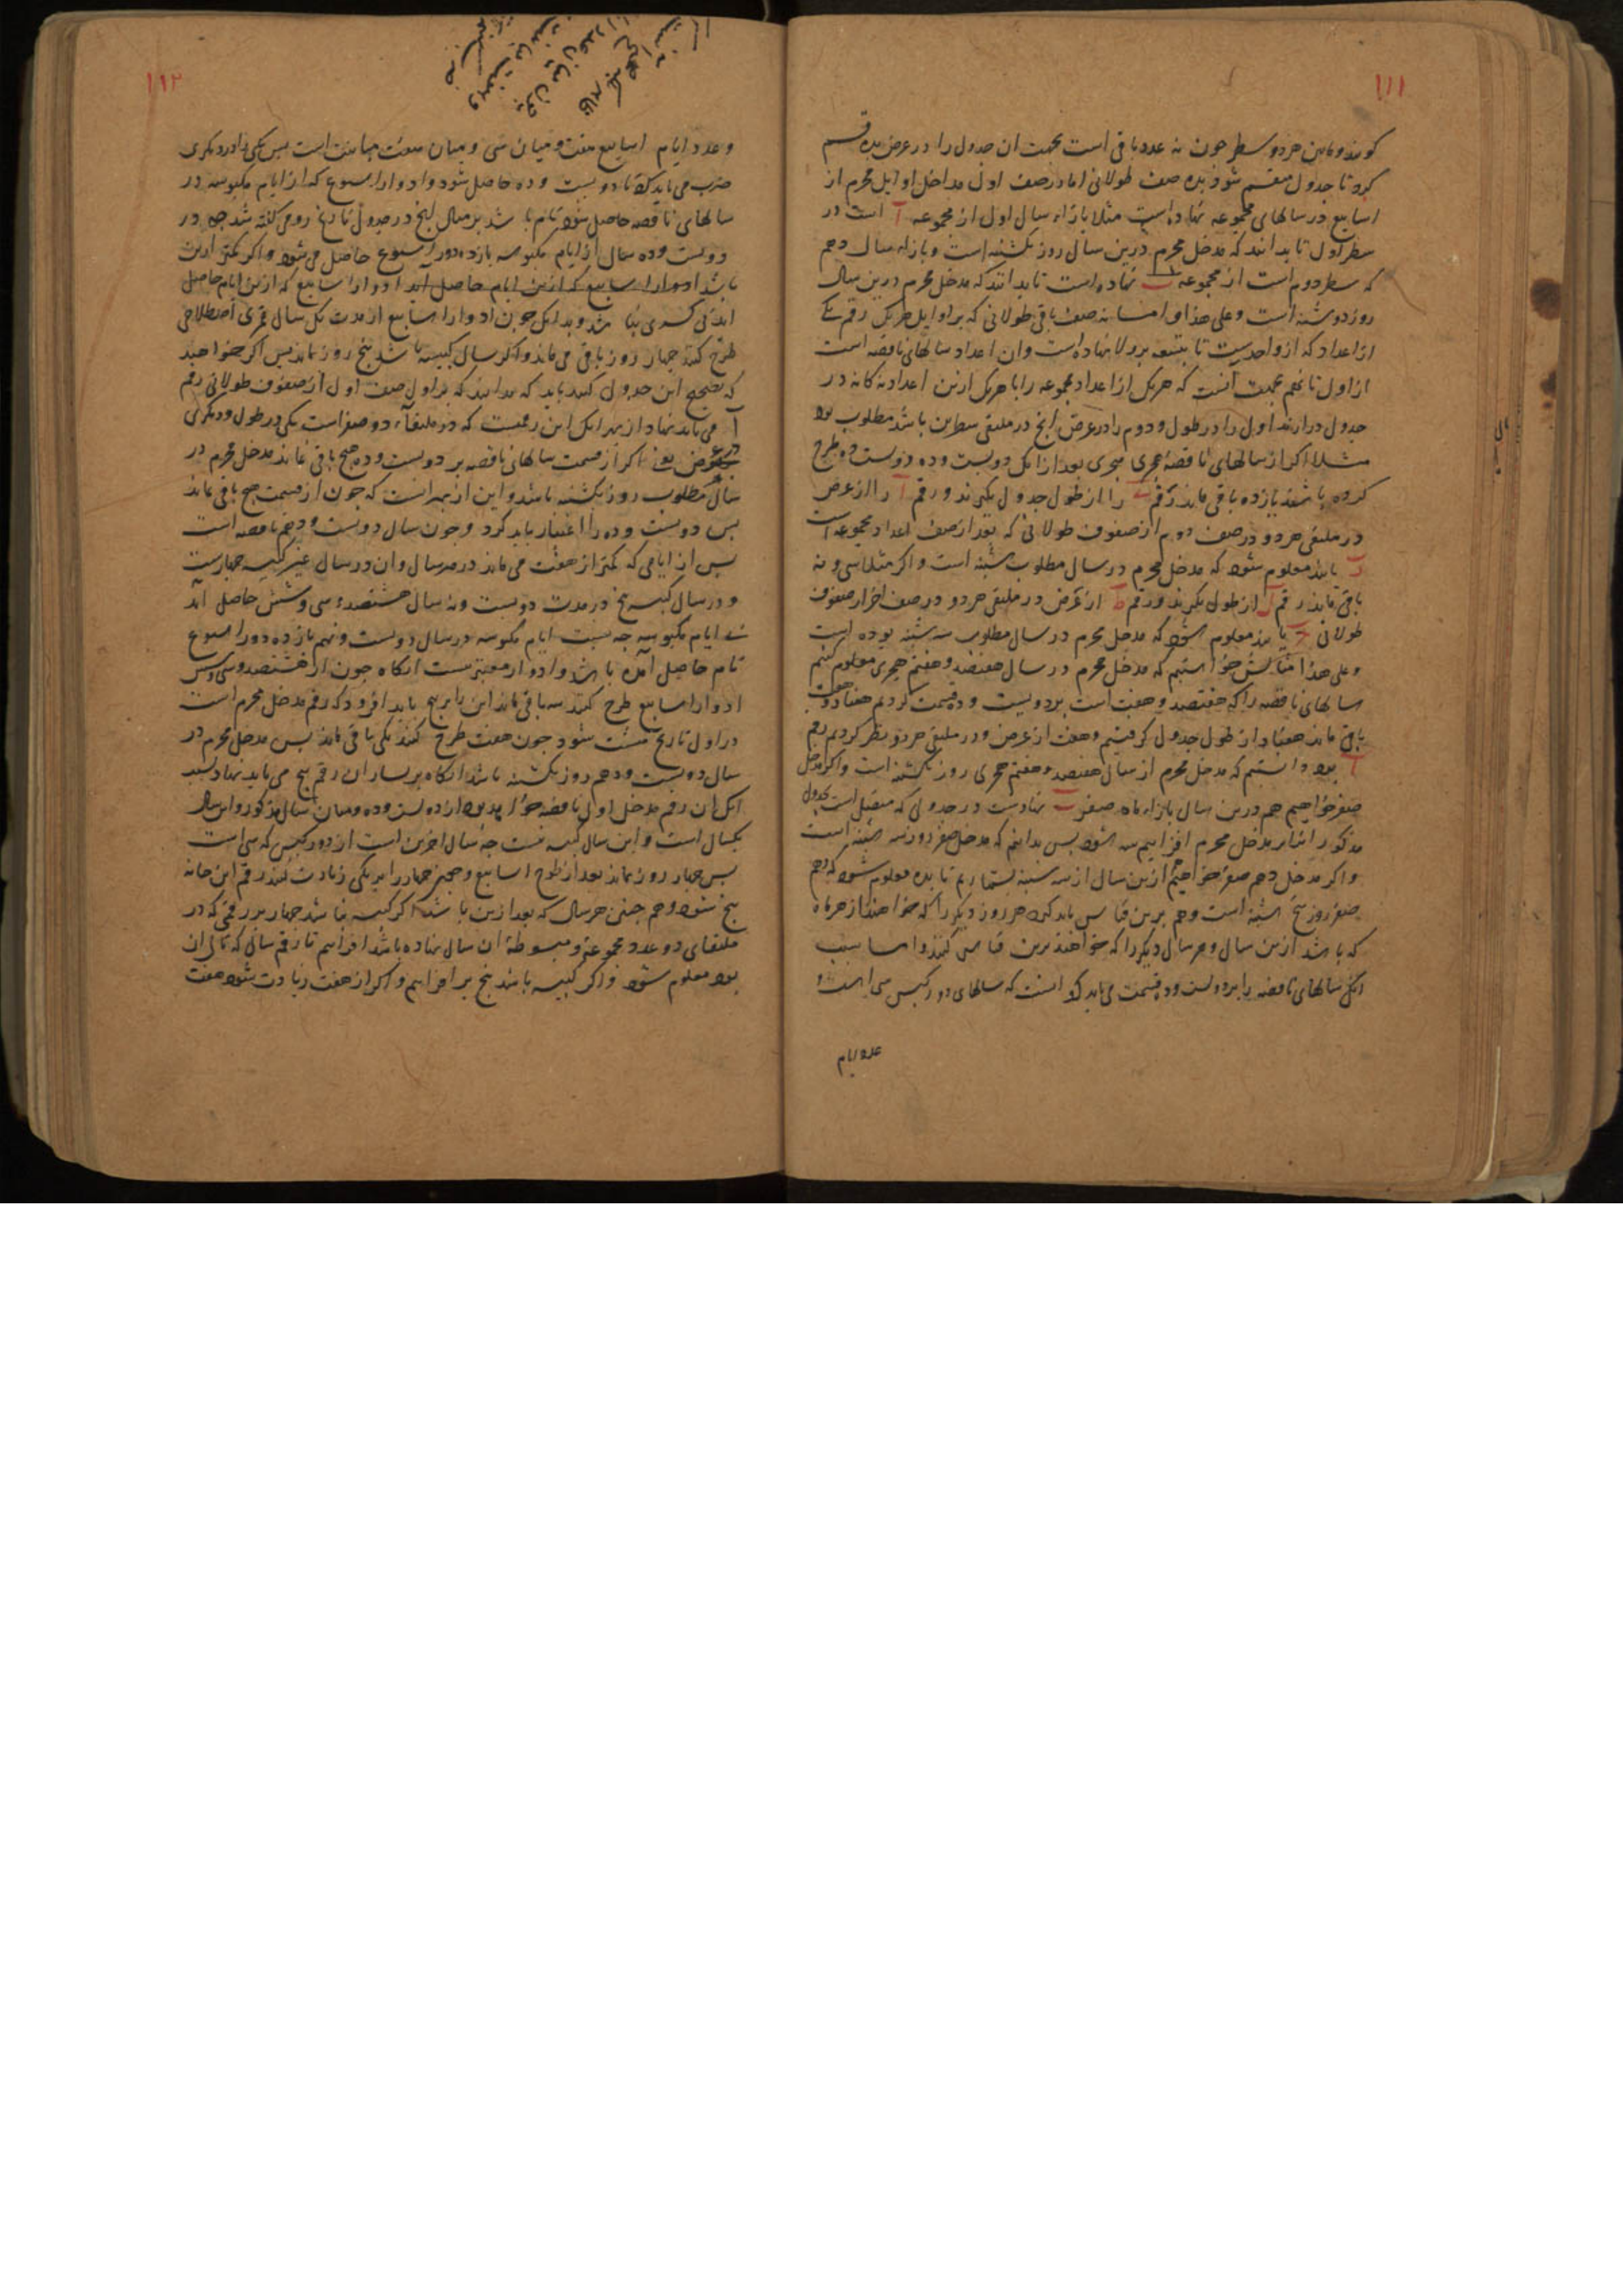 ١١١
کویند و مابین هر دو سطر چون نه عدد باقی است بجهت ان جدول را در عرض بده قسم
کرد تا جدول منقسم شود بده صف طولانی اما در صف اول مداخل اوایل محرم از
اسابیع در سالهای مجموعه نهاده است مثلا بازاء سال اول از مجموعه آ است در
سطر اول تا بدانند که مدخل محرم درین سال روز یکشنبه است و بازاء سال دهم
که سطر دوم است از مجموعه نهاده است تا بدانند که مدخل محرم درین سال
روز دوشنبه است و علی هذا و اما نه صف باقی طولانی که بر اوایل هر یک رقم یکی
از اعداد که از واحدست تا بتسعه بر ولا نهاده است وان اعداد سالهای ناقصه است
از اول تا نهم بجهت آنست که هر یک از اعداد مجموعه را با هر یک ازین اعداد نه کانه در
جدول درارند اول را در طول و دوم را در عرض انچ در ملتقی سطرین باشد مطلوب بود
مثلا اکر از سالهای ناقصه هجری بعد از انک دویست و ده دویست و ده طرح
کرده باشند یازده باقی ماند رقم را از طول جدول بکیرند و رقم آ را از عرض
در ملتقی هر دو در صف دوم از صفوف طولانی که بعد از صف اعداد مجموعه است
ز یابند معلوم شود که مدخل محرم در سال مطلوب شنبه است و اکر مثلا سی و نه
باقی ماند رقم ل از طول بکیرند و رقم ط از عرض در ملتقی هر دو در صف اخر از صفوف
طولانی یابند معلوم شود که مدخل محرم در سال مطلوب سه شنبه بوده است
و علی هذا مثالش خواستیم که مدخل محرم در سال هفتصد و هفتم هجری معلوم کنیم
سالهای ناقصه را که هفتصد و هفت است بر دویست و ده قسمت کردیم هفتاد و هفت
باقی ماند هفتاد از طول جدول کرفتیم و هفت از عرض و در ملتقی هر دو نظر کردیم رقم
آ بود دانستیم که مدخل محرم از سال هفتصد و هفتم هجری روز یکشنبه است و اکر مدخل
صفر خواهیم هم درین سال بازاء ماه صفر نهادست در جدولی که متصل است بجدول
مذکور انرا بر مدخل محرم افزاییم سه شود پس بدانیم که مدخل صفر روز سه شنبه است
و اکر مدخل دهم صفر خواهیم ازین سال از سه شنبه بشماریم تا بده معلوم شود که دهم
صفر روز پنج شنبه است و هم برین قیاس باید کرد هر روز دیکر را که خواهند از هر ماه
که باشد ازین سال و هر سال دیکر را که خواهند برین قیاس کنند و اما سبب
انک سالهای ناقصه را بر دویست و ده قسمت می باید کرد انست که سالهای دور کبس سی است و
عدد ایام
١١٢
و عدد ایام اسابیع هفت و میان سی و میان هفت مباینت است پس یکی را در دیکری
ضرب می باید کرد تا دویست و ده حاصل شود و ادوار اسبوع که از ایام مکبوسه در
سالهای ناقصه حاصل شود تام باشد بر مثال انچ در جدول تاریخ رومی کفته شد چه در
دویست و ده سال از ایام مکبوسه یازده دور اسبوع حاصل می شود و اکر کمتر ازین
باشد ادوار اسابیع که ازین ایام حاصل آید ادوار اسابیع که ازین ایام حاصل
اید بی کسری نباشد و بدانک چون ادوار اسابیع از مدت یک سال قمری اصطلاحی
طرح کنند چهار روز باقی می ماند و اکر سال کبیسه باشد پنج روز ماند پس اکر خواهند
که تصحیح این جدول کنند باید که بدانند که بر اول صف اول از صفوف طولانی رقم
آ می باید نهاد از بهر انک این رقمیست که در ملتقاء دو صفر است یکی در طول و دیکری
در عرض یعنی اکر از قسمت سالهای ناقصه بر دویست و ده هیچ باقی نماند مدخل محرم در
سال مطلوب روز یکشنبه باشد و این از بهر انست که چون از قسمت هیچ باقی نماند
پس دویست و ده را اعتبار باید کرد و چون سال دویست و دهم ناقصه است
پس از ایامی که کمتر از هفت می ماند در هر سال و ان در سال غیر کبیسه چهارست
و در سال کبیسه پنج در مدت دویست و نه سال هشتصد و سی و شش حاصل آید
بی ایام مکبوسه چه سبب ایام مکبوسه در سال دویست و نهم یازده دور اسبوع
تام حاصل آمده باشد و ادوار معتبر نیست انکاه چون از هشتصد و سی و شش
ادوار اسابیع طرح کنند سه باقی ماند این را بر پنج باید افزود که رقم مدخل محرم است
در اول تاریخ هشت شود چون هفت طرح کنند یکی باقی ماند پس مدخل محرم در
سال دویست و دهم روز یکشنبه باشد انکاه بر یسار ان رقم پنج می باید نهاد بسبب
انک ان رقم مدخل اول ناقصه خواهد بود از دویست و ده و میان سال مذکور و این سال
یکسال است و این سال کبیسه نیست چه سال اخرین است از دور کبس که سی است
پس چهار روز ماند بعد از طرح اسابیع و چون چهار را بر یکی زیادت کنند رقم این خانه
پنج شود و هم چنین هر سال که بعد ازین باشد اکر کبیسه نباشد چهار بر رقمی که در
ملتقای دو عدد مجموعه و مبسوطه ان سال نهاده باشد افزاییم تا رقم سالی که تالی ان
بود معلوم شود و اکر کبیسه باشد پنج بر افزاییم و اکر از هفت زیادت شود هفت